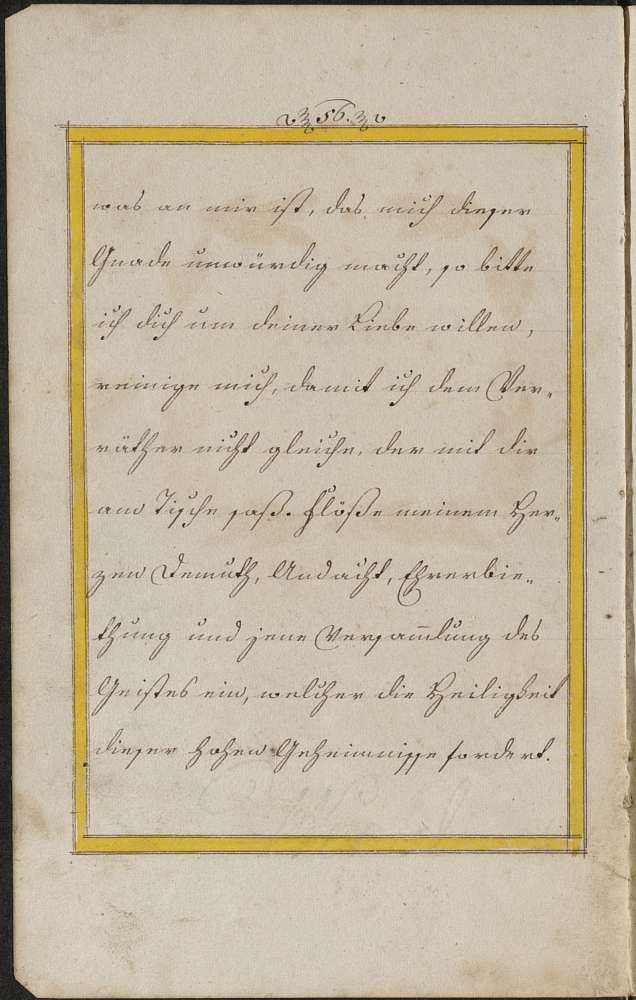 56.
was an mir ist, das mich dieser
Gnade unwürdig macht, so bitte
ich dich um deiner Liebe willen,
reinige mich, damit ich dem Ver„
räther nicht gleiche, der mit dir
am Tische saß. Flöße meinem Her„
zen Demuth, Andacht, Ehrerbie„
thung und jene Versam̅lung des
Geistes ein, welcher die Heiligkeit
dieser hohen Geheimnisse fordert.